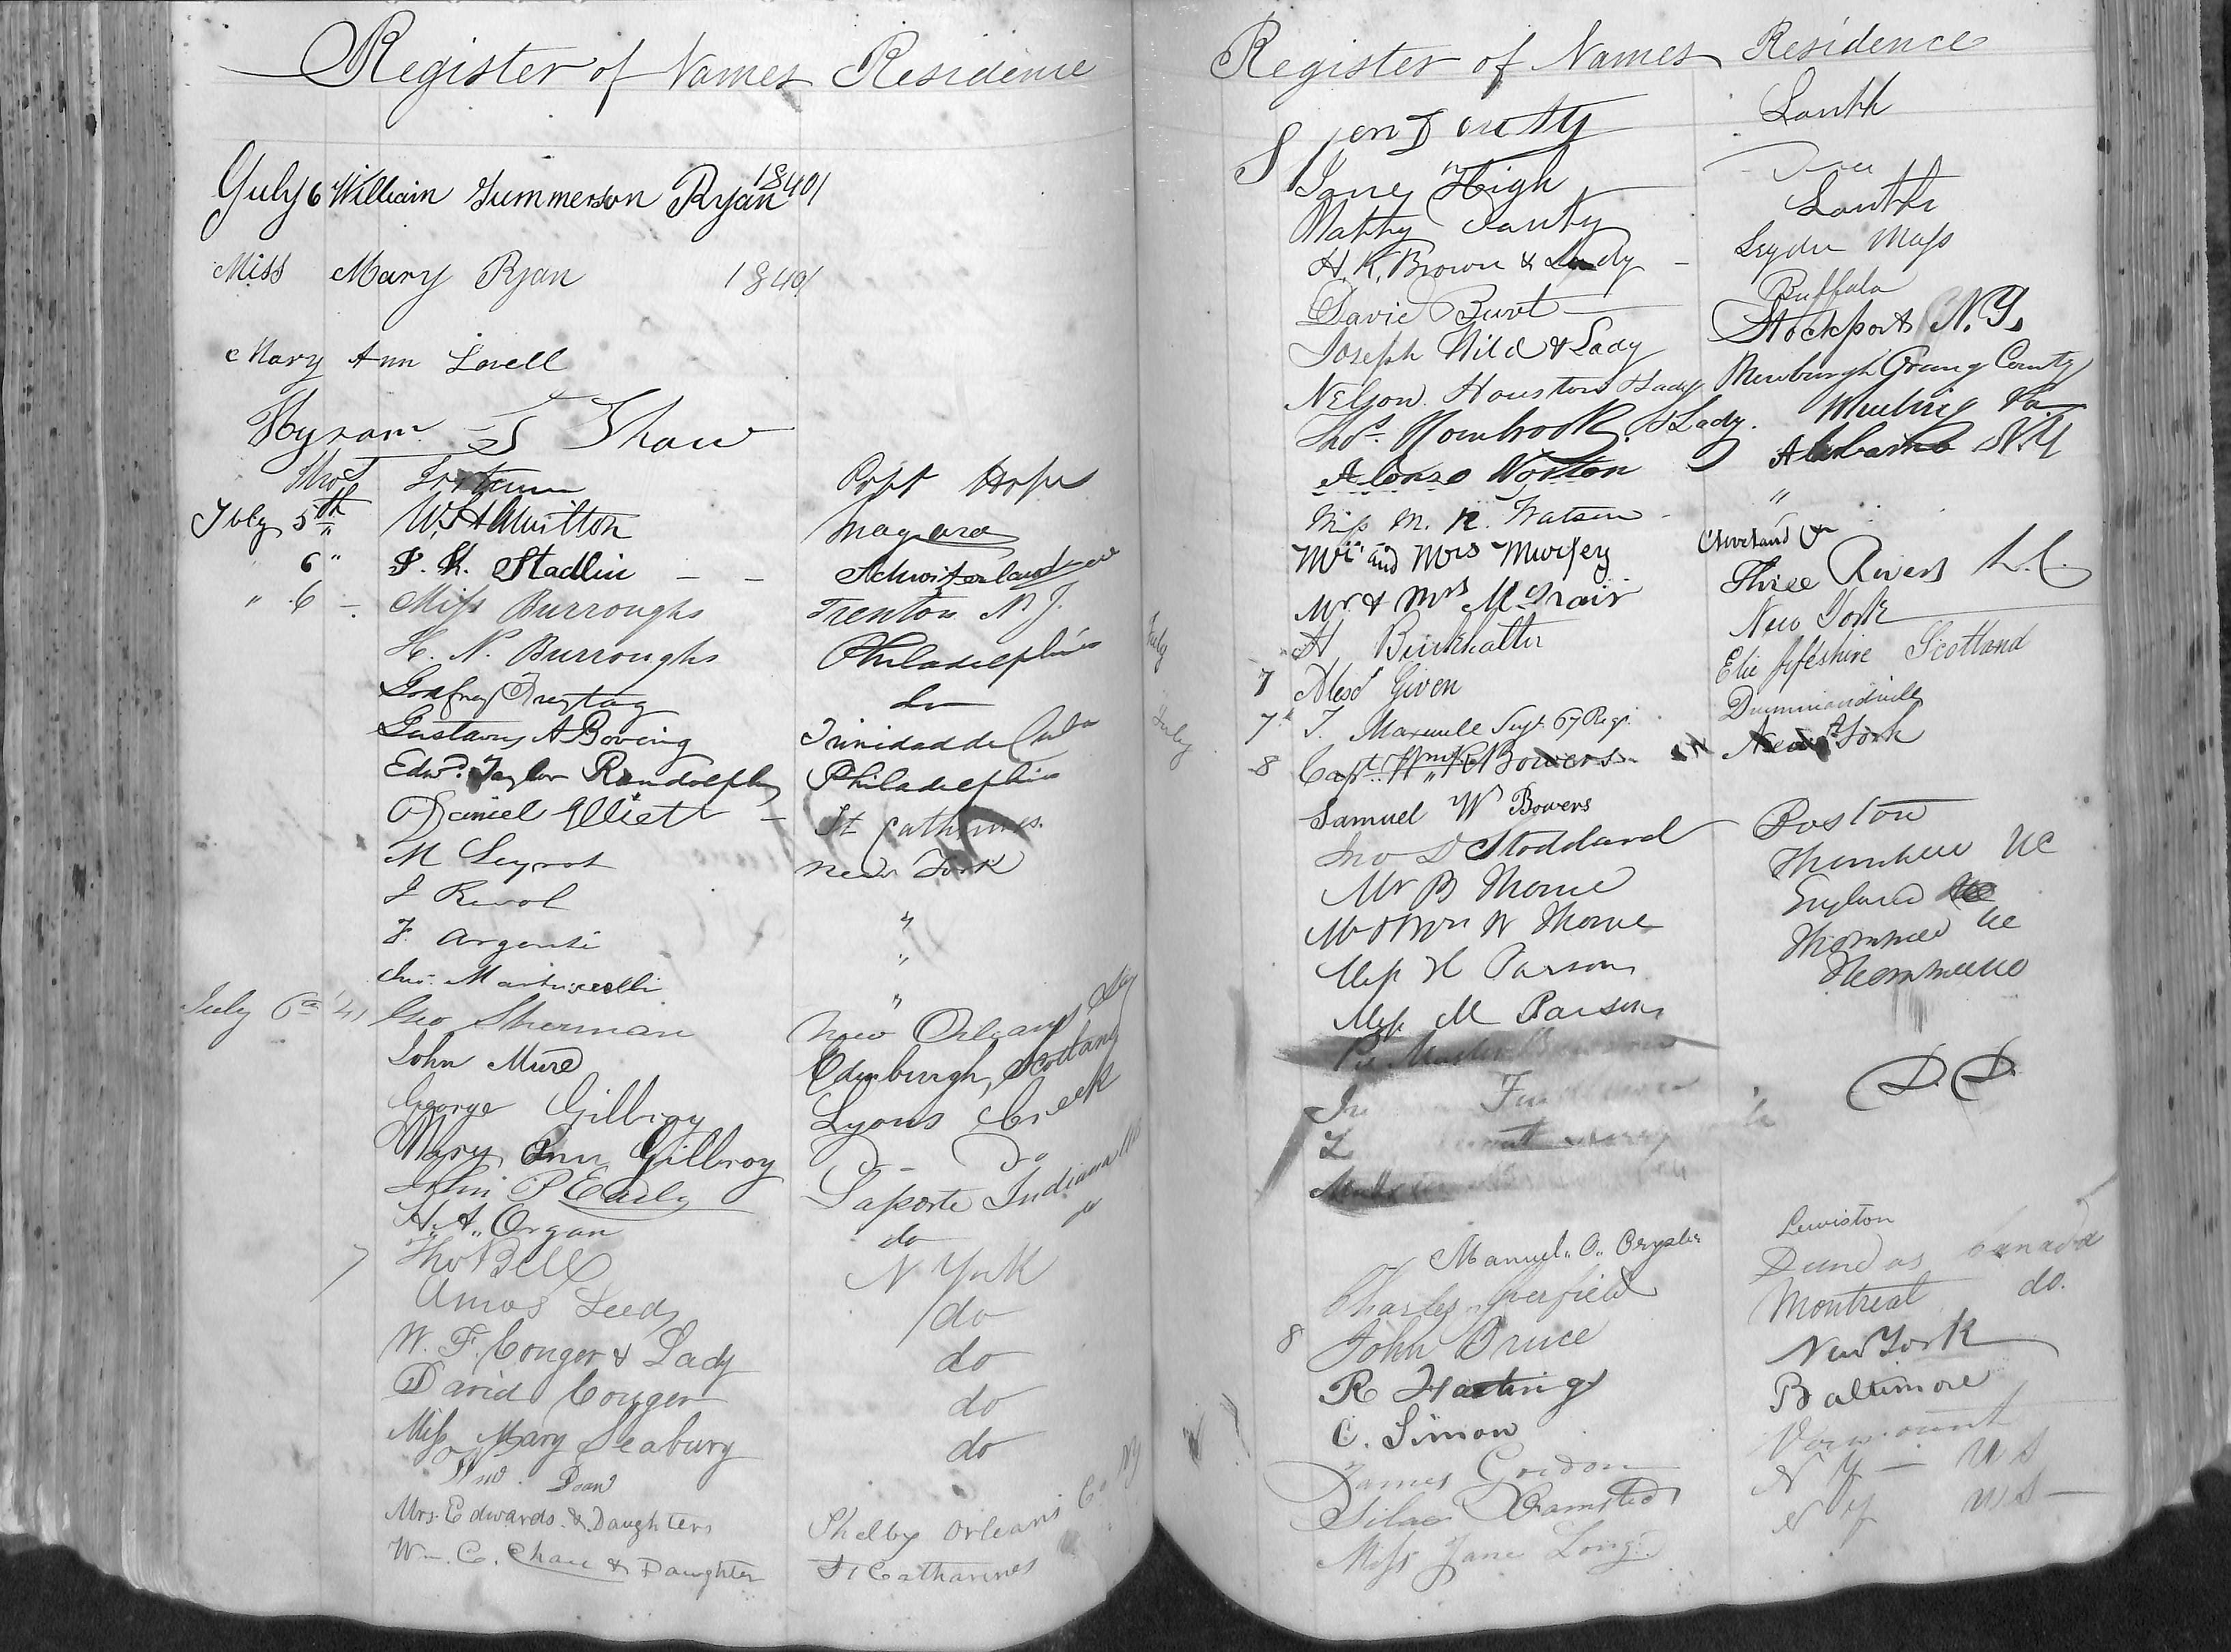 Register of Names Residence
July 6 William Summerson Ryan 1840/
Miss Mary Ryan 1840/
Mary Ann Lovell
Hyram S Shaw
Thos
July 5th W. Hamilton
6 " J. K. Stadlin – –
" 6 – Miss Burroughs Trenton N J.
H. N. Burroughs Philadelphia
Godfrey Freytag do
Gustavus A Boving Trinidad de Cuba
Edwd. Taylor Randolph Philadelphia
Daniel Elliott – St Catharines.
M Leyrot New York
J Revol "
F. Argenti "
Jno. Martinelli "
July 6th 41 Geo Sherman New Orleans
John Mure Edinburgh, Scotland
George Gilbroy Lyons Creek
Mary Ann Gilbroy Do Do
John P Early Laporte Indiana
H. A. Organ do do
7 Tho Bell N York
Amos Leeds do
W. F. Conger & Lady do
David Conger do
Miss Mary Seabury do
Dean
Mrs. Edwards & Daughters Shelby Orleans Co NY
Wm. C. Chace & Daughter St Catharines
Register of Names Residence
Louth
Jane High
Matthy Louth
H. K. Brown & Lady – Leyden Mass
David Burt Buffalo
Joseph Wild & Lady Stockport N. Y.
Nelson Houston & Lady Newburgh Orange County
Thos. Hornbrook & Lady. Wheeling Va
Alonzo Norton N.Y
Miss M. R. Watson "
Mr and Mrs Murfey Cleveland O
Mr & Mrs McNair Three Rivers L. C.
July A Burkhalter New York
7 Alexr Given Elie fifeshire Scotland
July 7th T. Maxwell Sergt. 67 Regt. Drummondville
8 Capt. Wm. R Bowers New York
Samuel W Bowers
Jno D Stoddard Boston
Mr B Thorne Thornhill UC
Mr & Mrs W Thorne England
Miss H Parsons Thornhill UC
Miss M Parsons Thornhill UC
D. D.
Manuel. O. Crysler Lewiston
Charles Dundas Canada
8 John Bruce Montreal do.
R Hastings New York
C. Simon Baltimore
James Gordon Vermount
Silas N Y – U S
Miss Jane Long N Y U S –